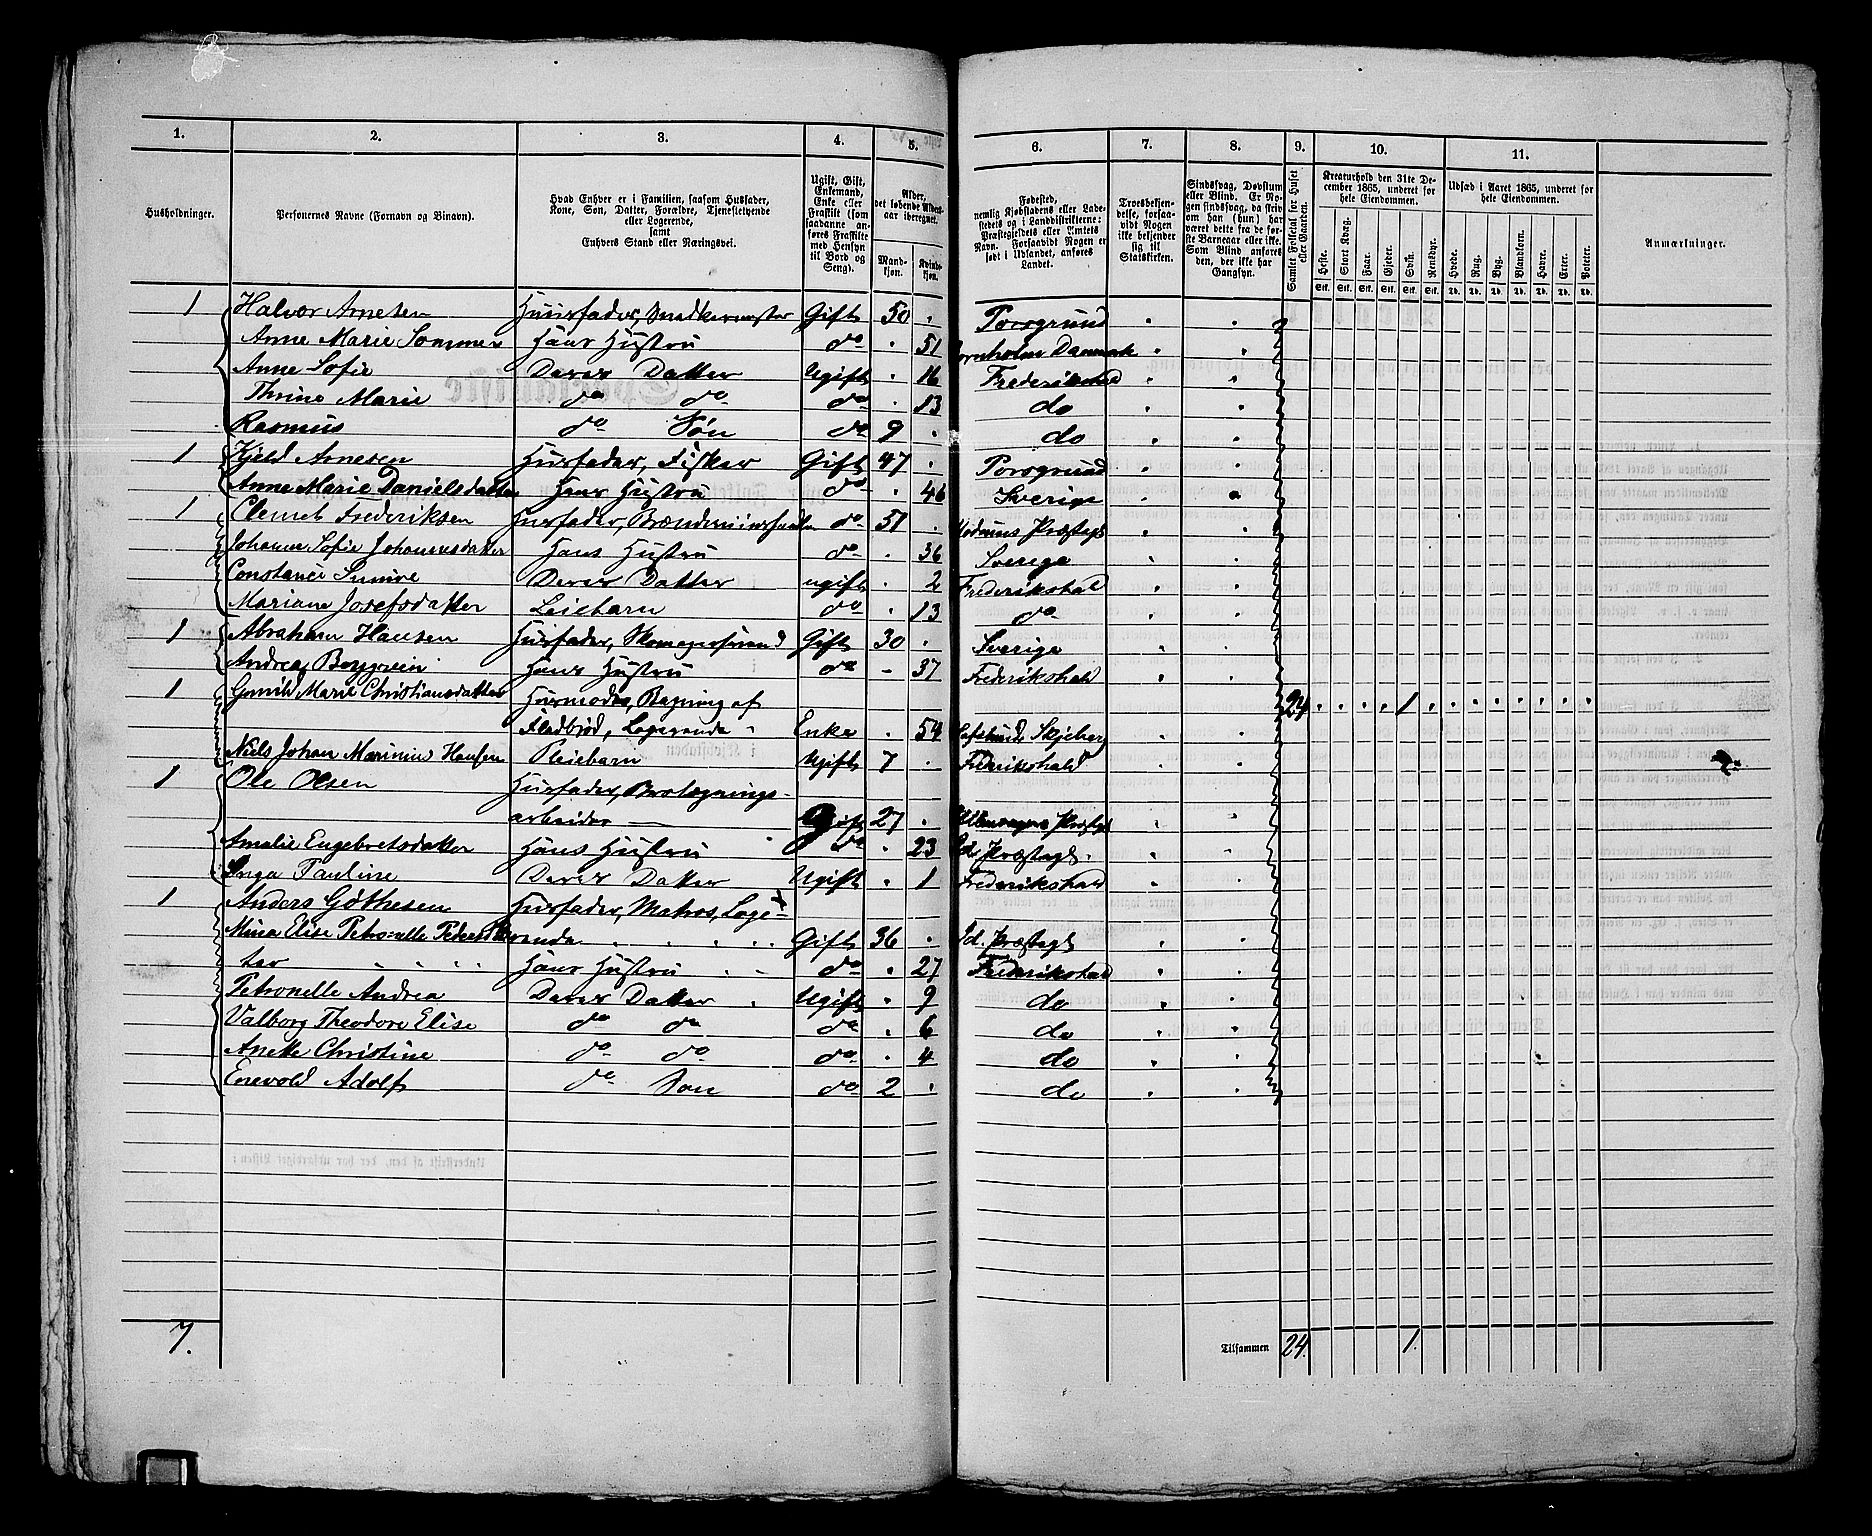 1. 2. 3. 4. 5. 6. 7. 8. 9. 10. 11.
Husholdninger.
Personernes Navne (Fornavn og Binavn).
Hvad Enhver er i Familien, saasom Husfader, Kone, Søn, Datter, Forældre, Tjenestetyende eller Logerende, samt Enhvers Stand eller Næringsvei.
Ugift, Gift, Enkemand, Enke eller Fraskilt (som saadanne anføres Fraskilte med Hensyn til Bord og Seng).
Alder, det løbende Aldersaar iberegnet.
Mandkjøn. Kvindekjøn.
Fødested, nemlig Kjøbstadens eller Ladestedets og i Landdistrikterne: Præstegjeldets eller Amtets Navn. Forsaavidt Nogen er født i Udlandet, anføres Landet.
Troesbekjendelse, forsaavidt Nogen ikke bekjender sig til Statskirken.
Sindssvag, Døvstum eller Blind. Er Nogen sindssvag, da skriv om han (hun) har været dette fra de første Barneaar eller ikke. Som Blind anføres den, der ikke har Gangsyn.
Samlet Folketal for Huset eller Gaarden.
Kreaturhold den 31te December 1865, underet for hele Eiendommen.
Heste. Stort Kvæg. Faar. Gjeder. Sviin. Rensdyr.
Stk. Stk. Stk. Stk. Stk. Stk.
Udsæd i Aaret 1865, underet for hele Eiendommen.
Hvede. Rug. Byg. Blandkorn. Havre. Erter. Poteter.
Td. Td. Td. Td. Td. Td. Td.
Anmærkninger.
1 Halvor Arnesen Huusfader, Snedkermester Gift 50 . Porsgrund
Anne Marie Sommer Hans Hustru do . 51 Bornholm Danmark
Anne Sofie Deres Datter Ugift . 16 Frederikshald
Thrine Marie do do do . 13 do
Rasmus do Søn do 9 . do
1 Kjeld Arnesen Husfader, Fisker Gift 47 . Porsgrund
Anne Marie Danielsdatter Hans Hustru do . 46 Sverige
1 Clemet Frederiksen Husfader, do 51 . Præstegd
Johanne Sofie Johannesdatter Hans Hustru do . 36 Sverige
Constance Deres Datter ugift . 2 Frederikshald
Mariane Josefsdatter Leiebarn do . 13 do
1 Abraham Hansen Husfader, Gift 30 . Sverige
Andrea Hans Hustru do - 37 Frederikshald
1 Marie Christiansdatter Husmoder, Bagning af
Fladbrød, Logerende Enke . 54 Skjeberg 24 . . . . 1 . . . . . . . .
Niels Johan Marinius Hansen Pleiebarn Ugift 7 . Fredrikshald
1 Ole Olsen Husfader, Brolægnings-
arbeider Gift 27 . Præstegd
Amalie Engebretsdatter Hans Hustru do . 23 Id Præstegd.
Inga Pauline Deres Datter Ugift . 1 Frederikshald
1 Anders Gøthesen Husfader, Matros, Loge-
Mina Elise Petronelle Peterdat rende Gift 36 . Id. Præstegd
ter Hans Hustru do . 27 Frederikshald
Petronelle Andrea Deres Datter Ugift . 9 do
Valborg Theodore Elise do do do . 6 do
Anette Christine do do do . 4 do
Enevold Adolf do Søn do 2 . do
7. Tilsammen 24. 1.